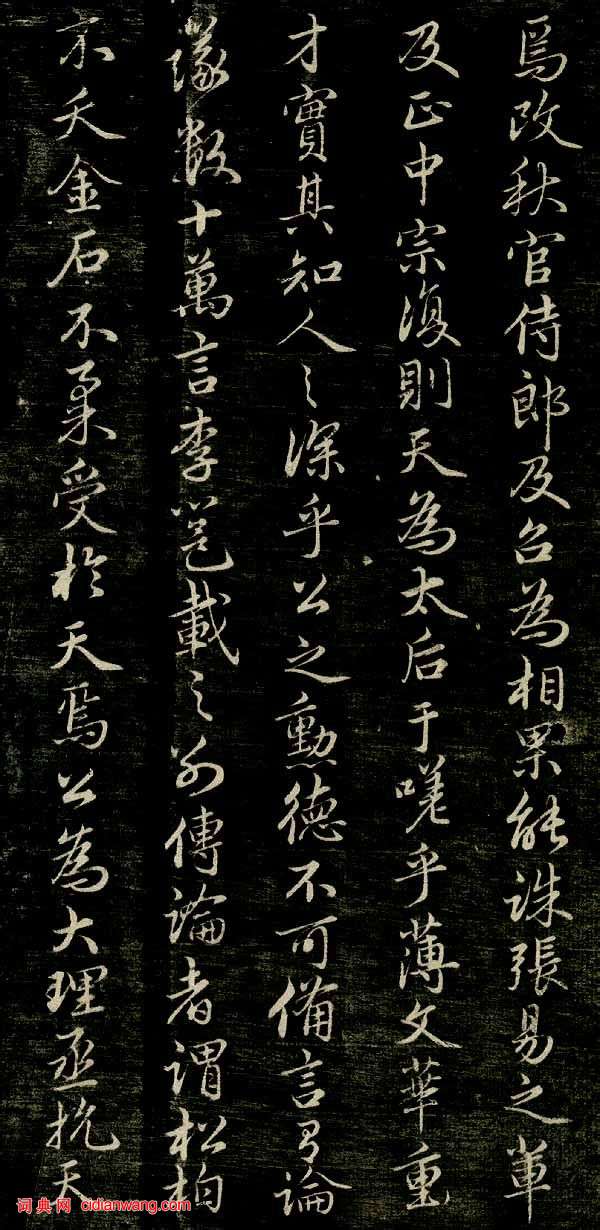 焉改秋官侍郎及召為相果能誅張易之輩
及正中宗復則天為太后于嗟乎薄文華重
才實其知人之深乎公之勳德不可備言有論
議數十萬言李邕載之別傳論者謂松柏
不夭金石不柔受於天焉公為大理丞抗天
词典网 cidianwang.com